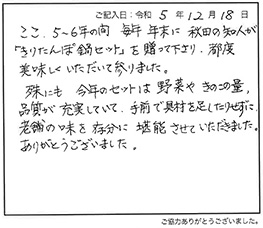 ご記入日：令和 5 年 12 月 18 日
ここ、5～6年の間 毎年 年末に 秋田の知人が
「きりたんぽ鍋セット」を 贈って下さり、都度
美味しく いただいて参りました。
殊にも 今年のセットは 野菜や きのこの量、
品質が 充実していて、手前で具材を足したりせずに、
老舗の味を存分に 堪能 させていただきました。
ありがとうございました。
ご協力ありがとうございました。